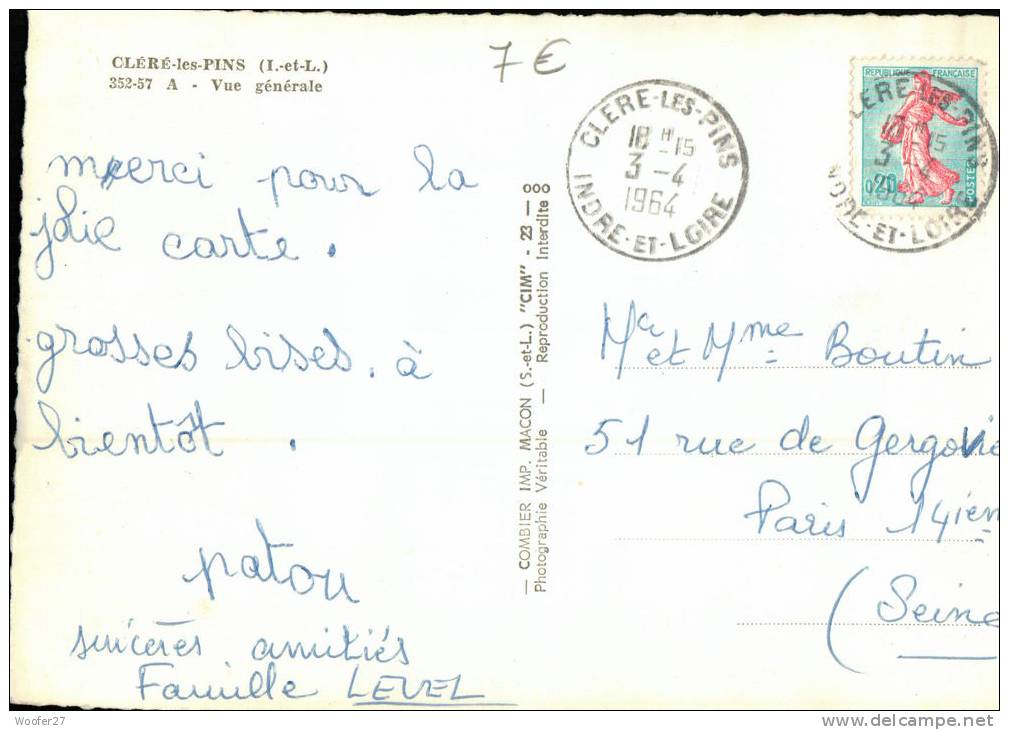 CLÉRÉ-les-PINS (I.-et-L.)
352-57 A - Vue générale
7 €
merci pour la
jolie carte.
grosses bises. à
bientôt.
patou
sincères amitiés
Famille LEVEL
— COMBIER IMP. MACON (S.-et-L.) "CIM" - 23 — 000
Photographie Véritable — Reproduction Interdite
CLERE-LES-PINS
18 H 15
3 - 4
1964
INDRE-ET-LOIRE
REPUBLIQUE FRANÇAISE
0,20
POSTES
CLERE-LES-PINS
18 H 15
3 - 4
1964
INDRE-ET-LOIRE
Mr et Mme Boutin
51 rue de Gergovie
Paris 14ièm
(Seine
Woofer27
www.delcampe.net